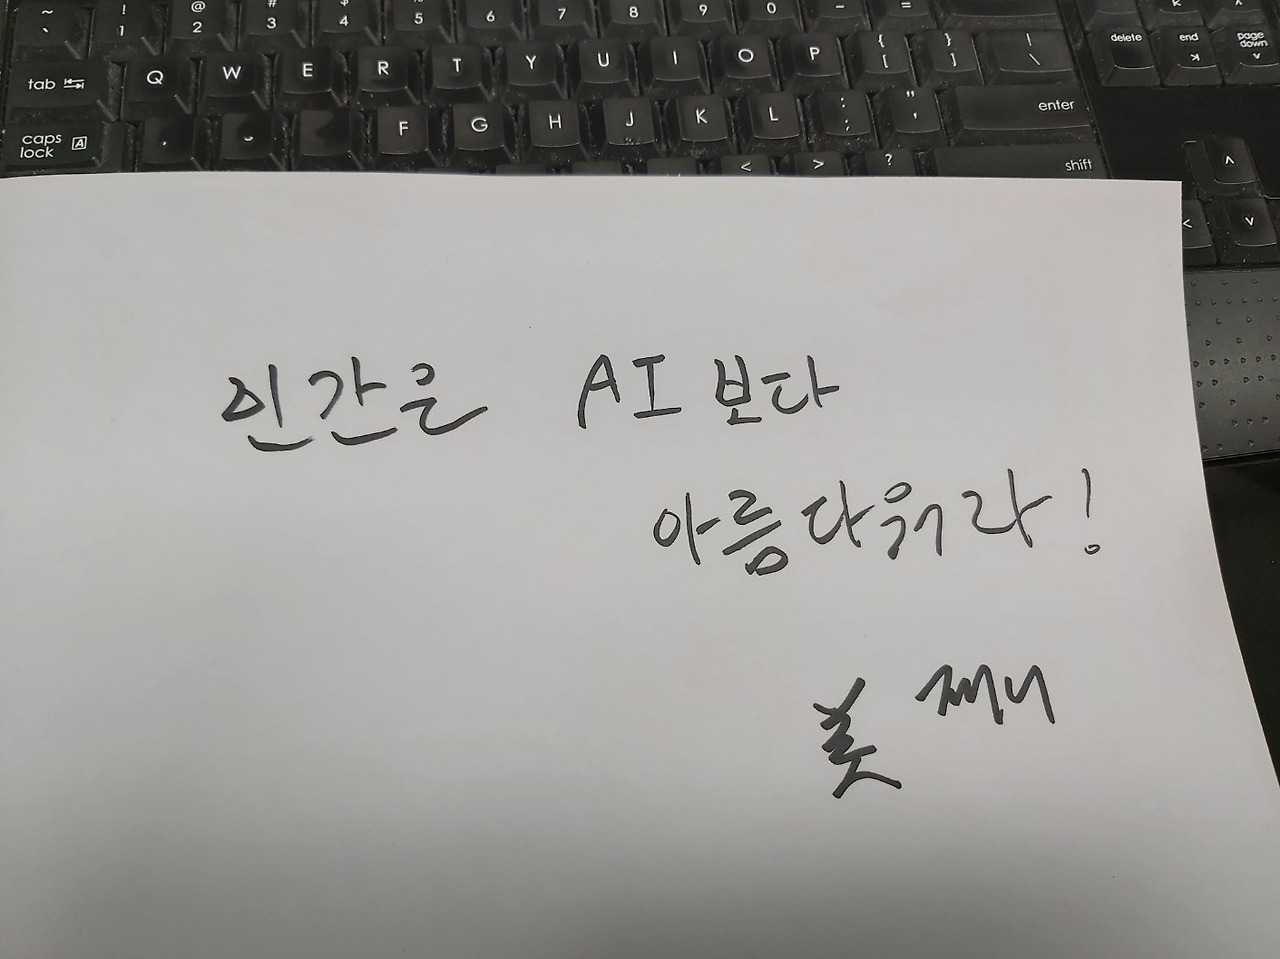 ~ ! @ # $ % ^ & * ( ) – + 
` 1 2 3 4 5 6 7 8 9 0 - =
tab Q W E R T Y U I O P { [ } ] | \ delete end page down
caps lock A F G H J K L : ; " ' enter
< > ? shift
인간은 AI보다
아름다워라!
美 쩨니